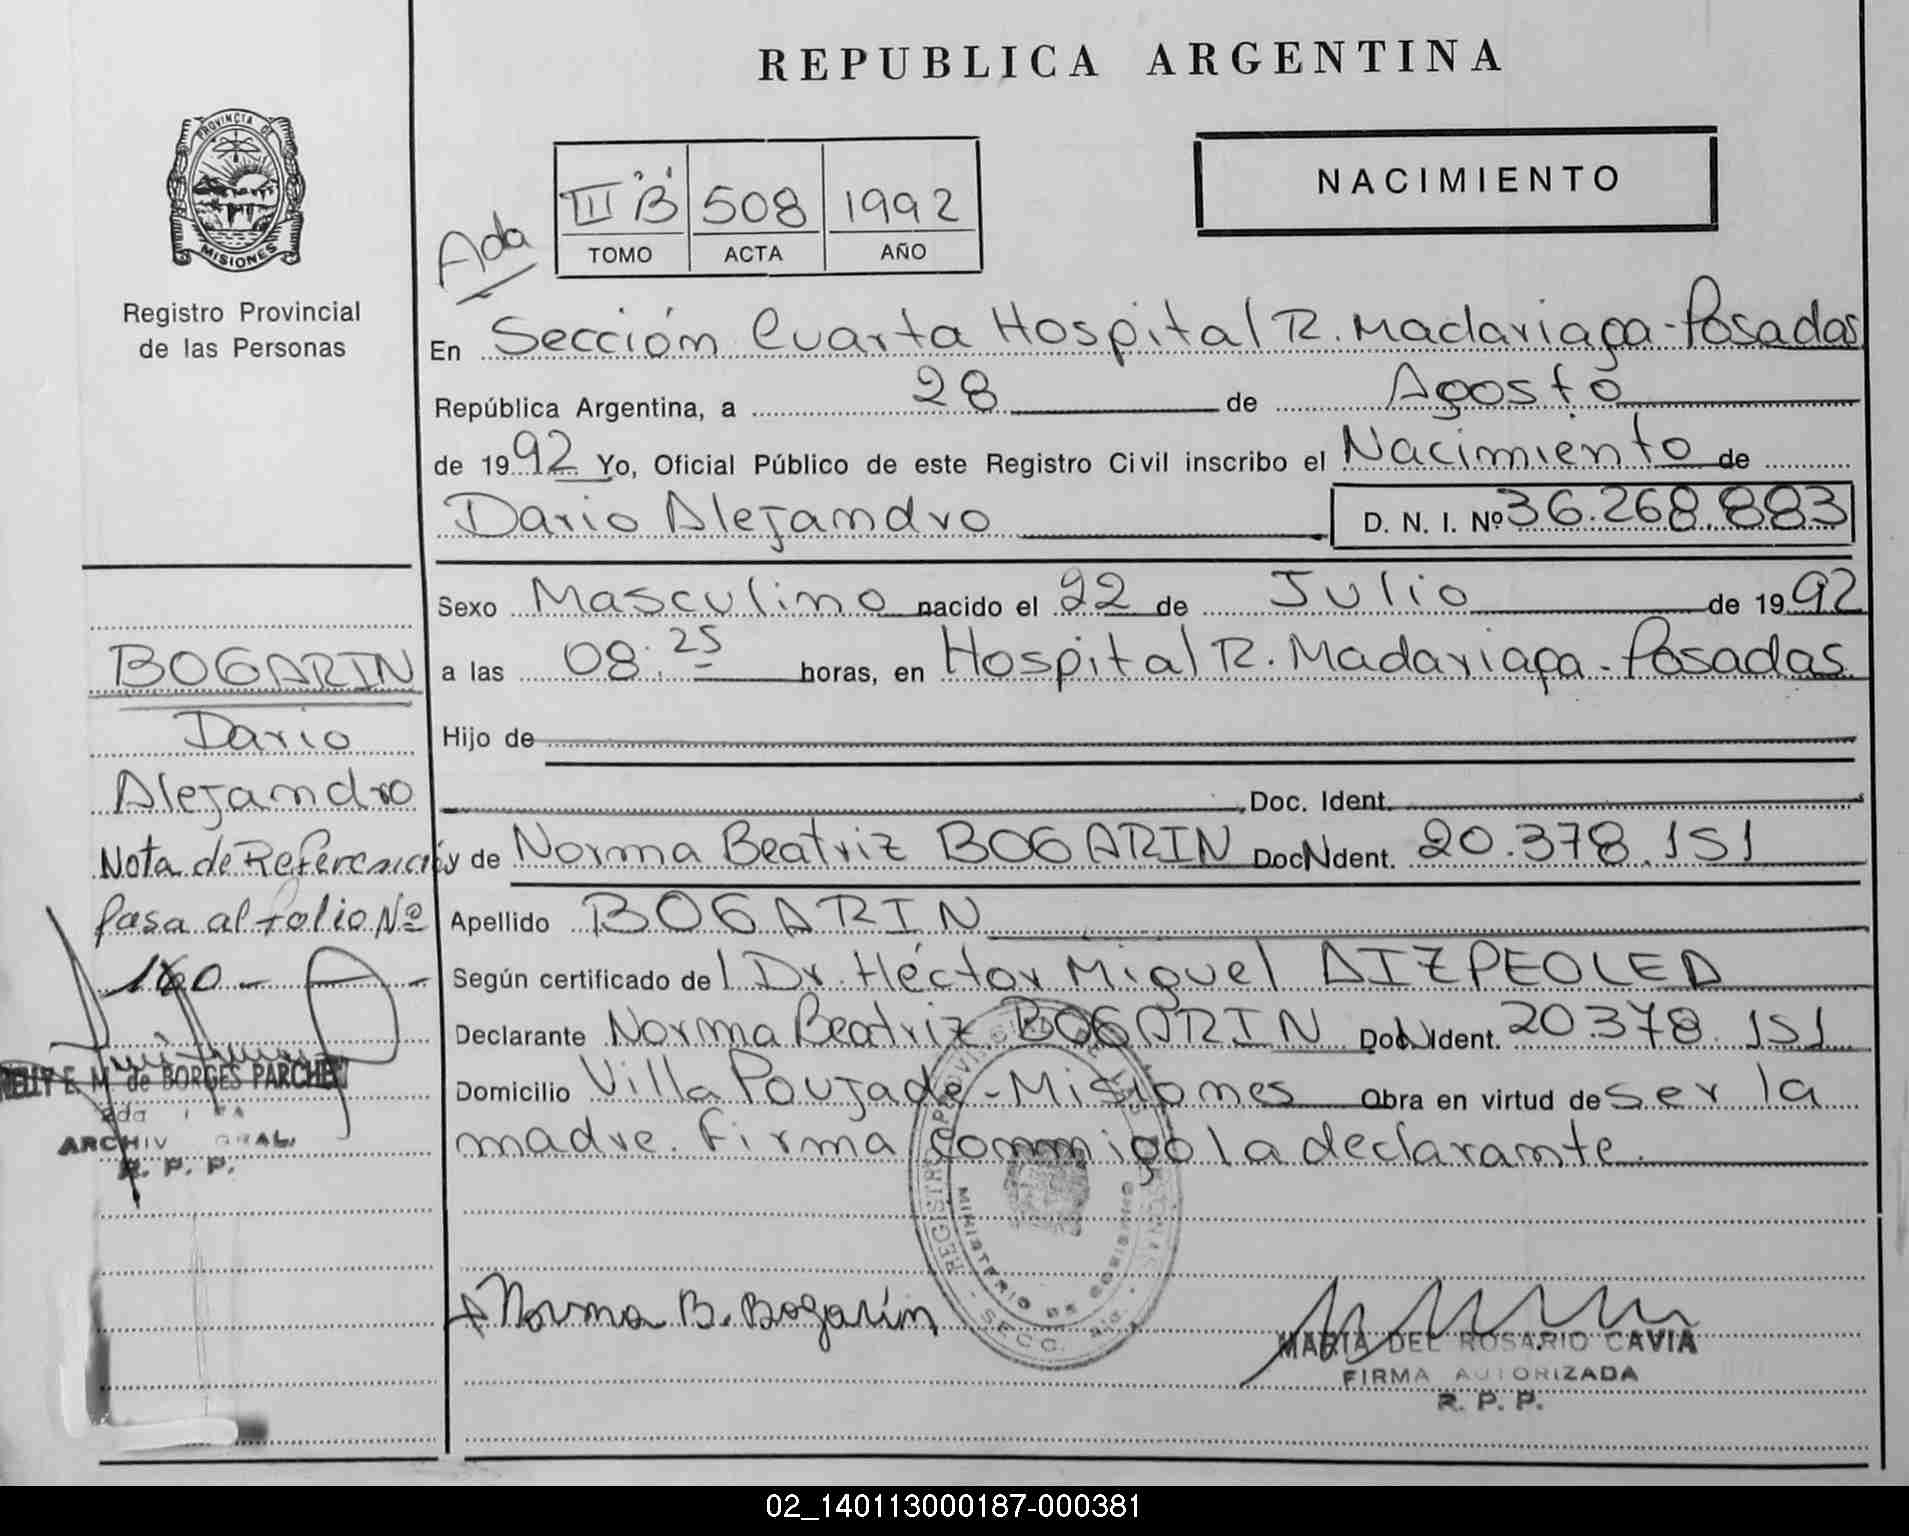 REPUBLICA ARGENTINA
PROVINCIA DE
MISIONES
Registro Provincial
de las Personas
NACIMIENTO
Ada
III "B" 508 1992
TOMO ACTA AÑO
En Sección Cuarta Hospital R. Madariaga - Posadas
República Argentina, a 28 de Agosto
de 1992 Yo, Oficial Público de este Registro Civil inscribo el Nacimiento de
Dario Alejandro D. N. I. Nº 36.268.883
Sexo Masculino nacido el 22 de Julio de 1992
a las 08:25 horas, en Hospital R. Madariaga - Posadas
Hijo de
Doc. Ident.
y de Norma Beatriz BOGARIN Doc N Ident. 20.378.151
Apellido BOGARIN
Según certificado del Dr. Héctor Miguel AIZPEOLEA
Declarante Norma Beatriz BOGARIN Doc N Ident. 20378.151
Domicilio Villa Poujade - Misiones Obra en virtud de ser la
madre. Firma conmigo la declarante.
BOGARIN
Dario
Alejandro
Nota de Referencia
Pasa al folio Nº
160 -
E. M. de BORGES PARCHE
ARCHIV GRAL.
R. P. P.
Norma B. Bogarín
REGISTRO PROVINCIAL DE LAS PERSONAS
MINISTERIO DE GOBIERNO
SECC.
MARIA DEL ROSARIO CAVIA
FIRMA AUTORIZADA
R. P. P.
02_140113000187-000381